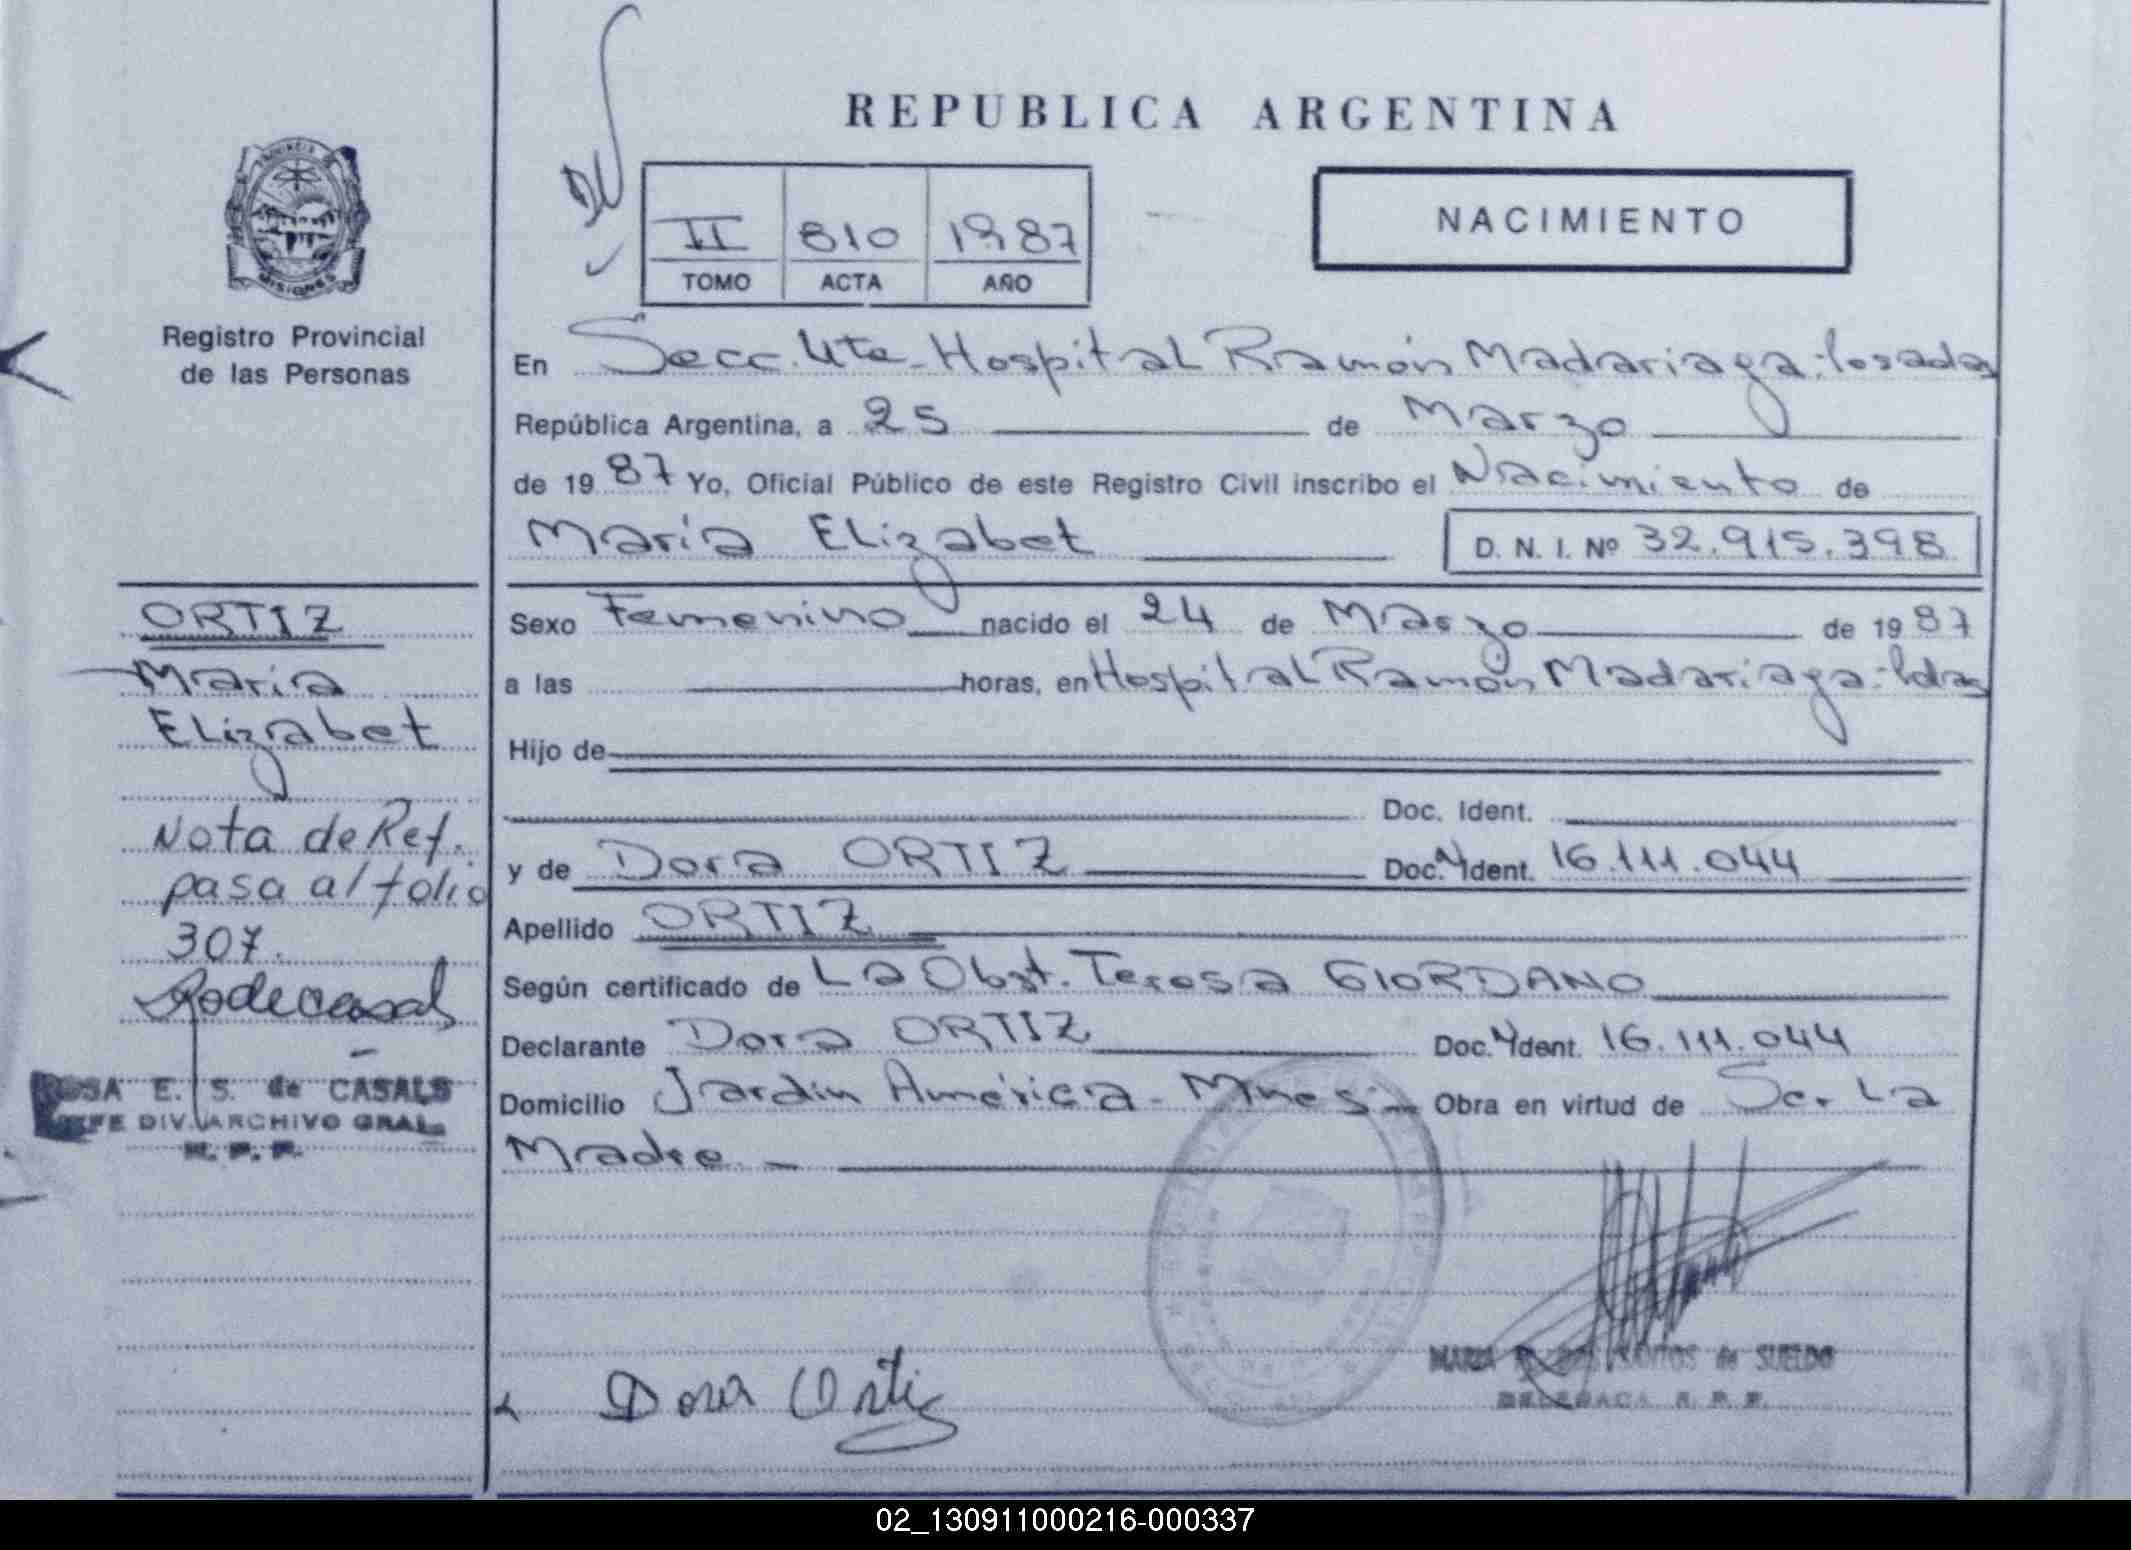 REPUBLICA ARGENTINA
II 810 1987
TOMO ACTA AÑO
NACIMIENTO
MISIONES
Registro Provincial
de las Personas
En Secc. 4ta - Hospital Ramón Madariaga - Posadas
República Argentina, a 25 de Marzo
de 1987 Yo, Oficial Público de este Registro Civil inscribo el Nacimiento de
María Elizabet D. N. I. Nº 32.915.398
Sexo Femenino nacido el 24 de Marzo de 1987
a las horas, en Hospital Ramón Madariaga - Pdas
Hijo de
Doc. Ident.
y de Dora ORTIZ Doc. Ident. 16.111.044
Apellido ORTIZ
Según certificado de La Obst. Teresa GIORDANO
Declarante Dora ORTIZ Doc. Ident. 16.111.044
Domicilio Jardín América - Mnes - Obra en virtud de Ser La
Madre
Dora Ortiz
MARIA SANTOS de SUELDO
DELEGADA R. P. P.
ORTIZ
María
Elizabet
Nota de Ref.
pasa al folio
307.
ROSA E. S. de CASALS
JEFE DIV. ARCHIVO GRAL.
R. P. P.
02_130911000216-000337